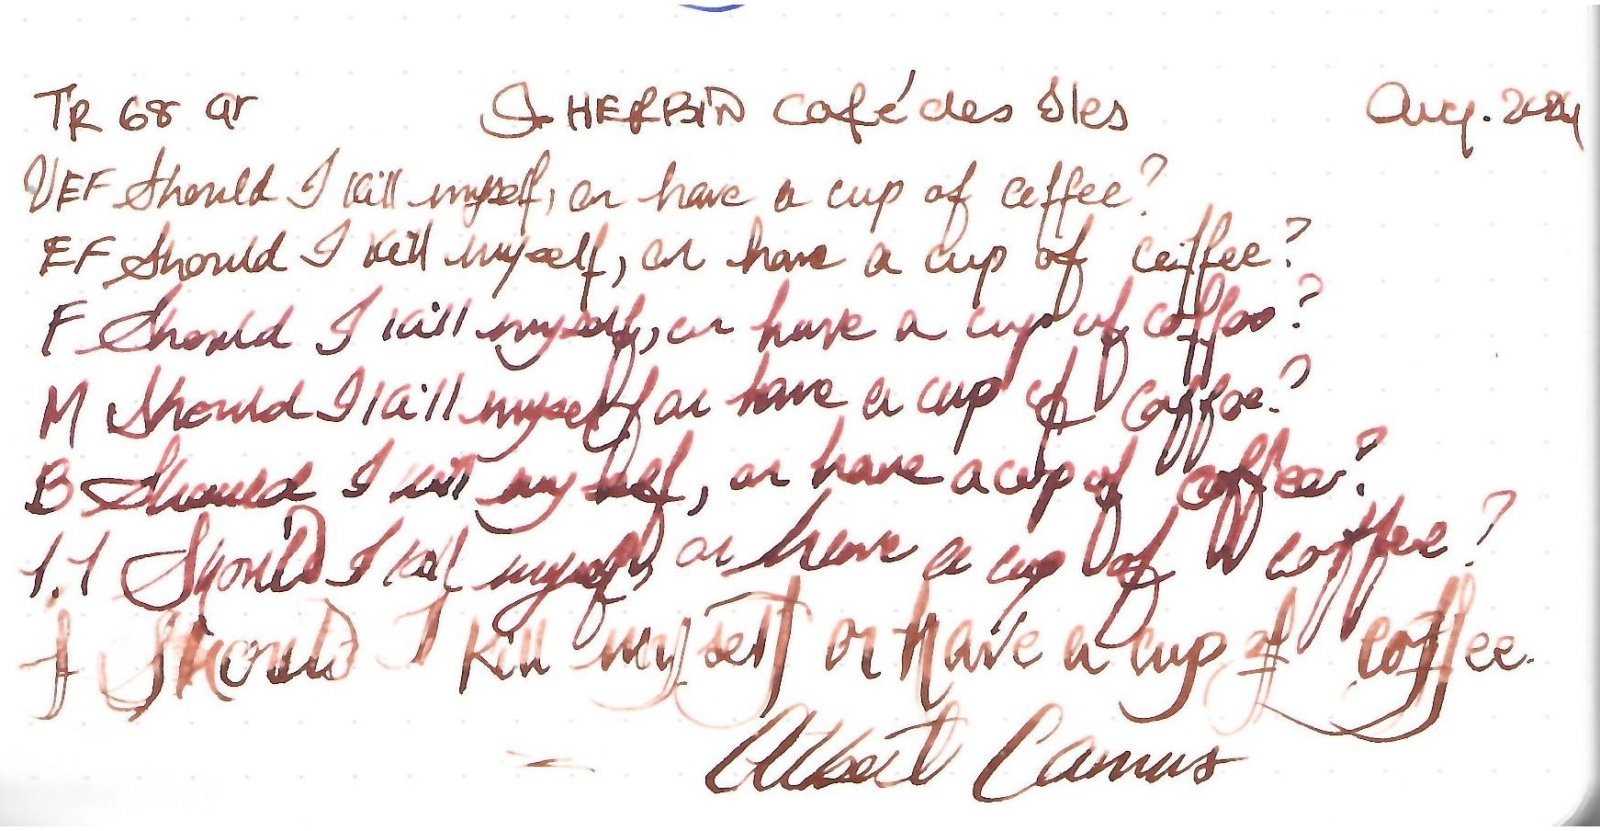 TR 68 gr J. HERBIN Café des Îles Aug. 2024
UEF Should I kill myself, or have a cup of coffee?
EF Should I kill myself, or have a cup of coffee?
F Should I kill myself, or have a cup of coffee?
M Should I kill myself or have a cup of coffee?
B Should I kill myself, or have a cup of coffee?
1.1 Should I kill myself, or have a cup of coffee?
f Should I kill myself or have a cup of coffee.
– Albert Camus